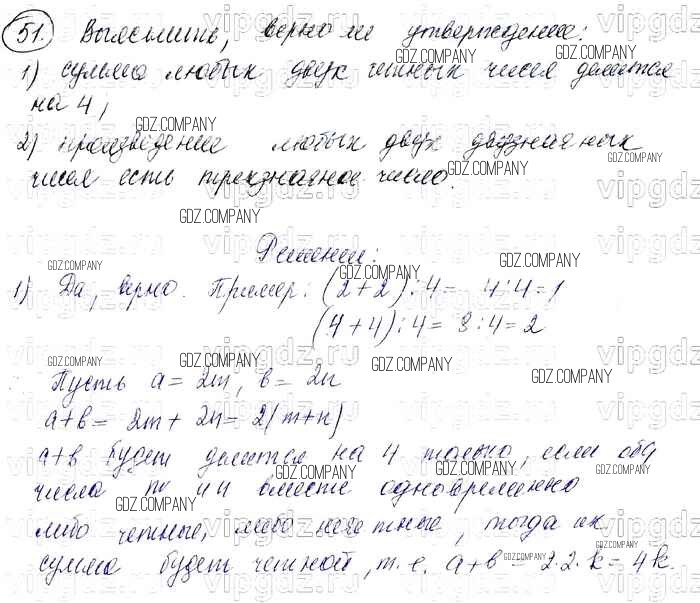 51. Выясните, верно ли утверждение:
1) сумма любых двух четных чисел делится
на 4,
2) произведение любых двух двузначных
чисел есть трехзначное число.
Решение:
1) Да, верно. Пример: (2+2):4= 4:4=1
(4+4):4= 8:4=2
Пусть a=2m, b=2n
a+b= 2m+2n=2(m+n)
a+b будет делится на 4 только, если оба
числа m и n вместе одновременно
либо четные, либо нечетные, тогда их
сумма будет четной, т.е. a+b=2·2·k=4k.
GDZ.COMPANY
vipgdz.ru